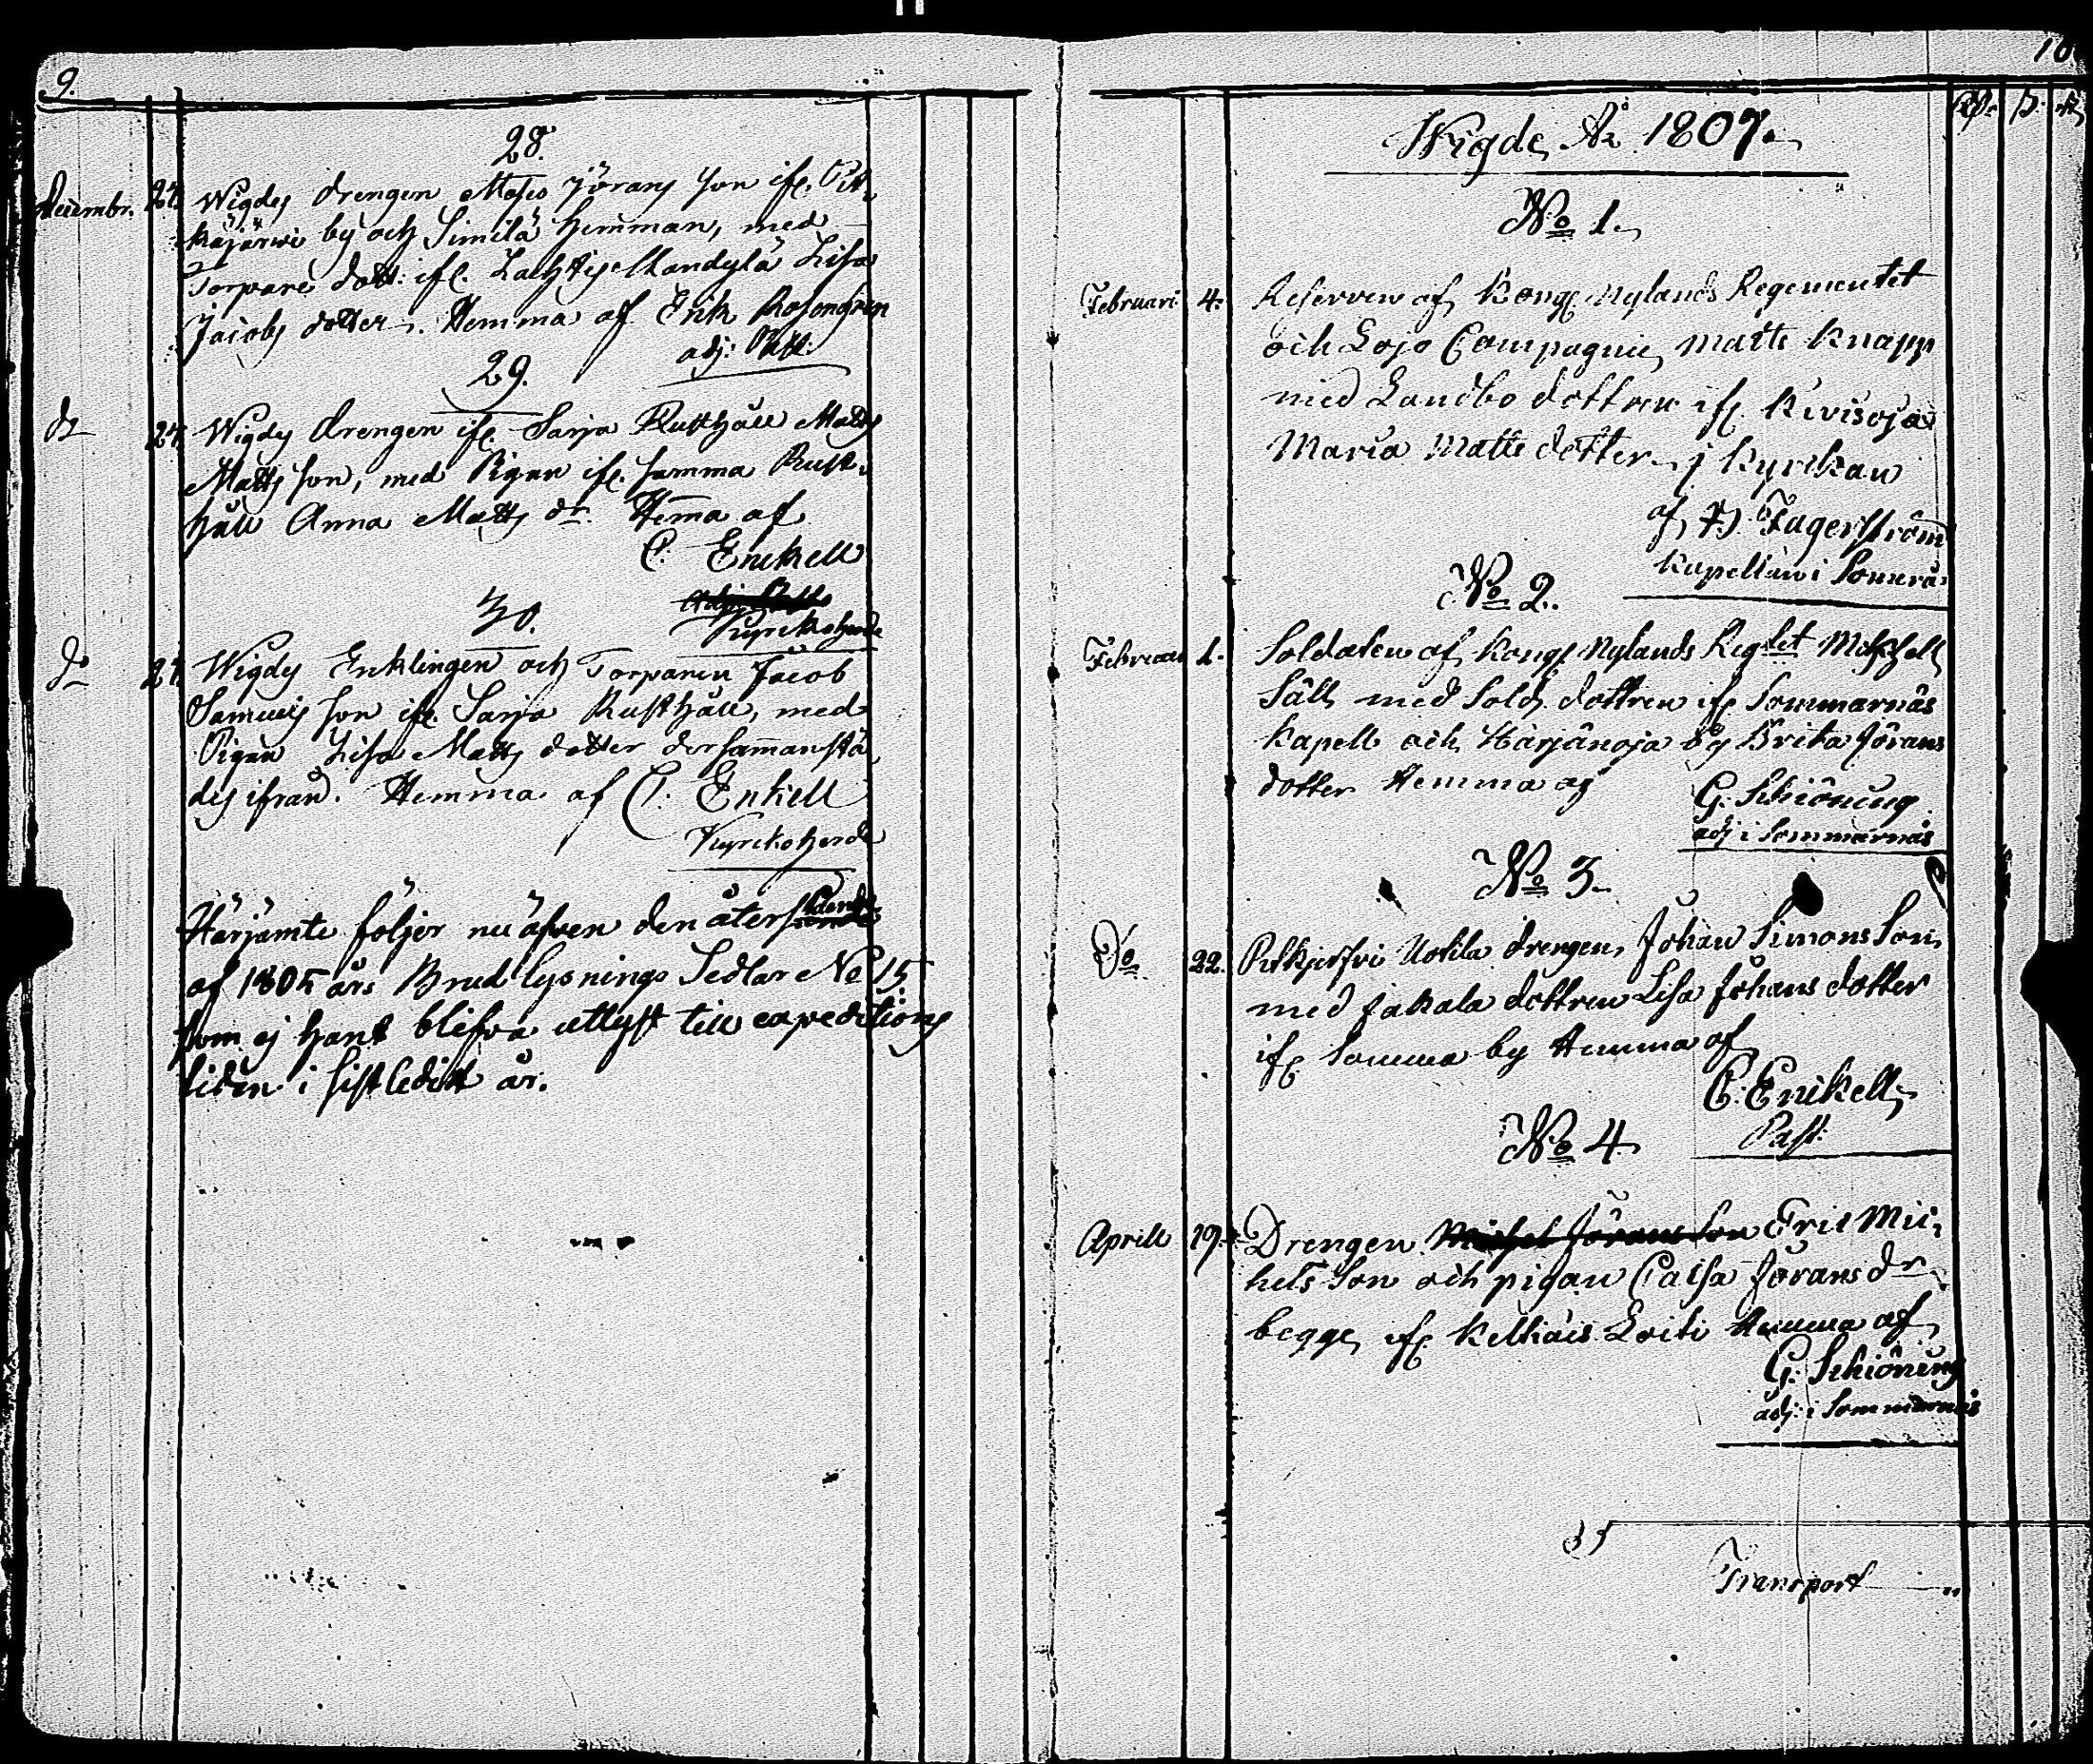 9.
28.
Decembr. 27. Wigdes drengen Mats Jörans Son ifr. Pit-
käjärwi by och Simila Hemman, med
Torpare dott: ifr. Lachtis Mandylä Lisa
Jacobs dotter. Hemma af Erik Rosengren
adj: Past:
29.
do 27. Wigdes drengen ifr. Sarja Rusthåll Matts
Matts Son, med Pigan ifr. samma Rust-
håll Anna Matts dr. Hema af
C: Enckell
Kyrkoherde
30.
do 27. Wigdes Enklingen och Torparen Jacob
Samuels Son ifr. Sarja Rusthåll, med
Pigan Lisa Matts dotter dersammanstä
des ifrån. Hemma af C: Enkell
Kyrkoherde
Härjämte följer nu äfven den återstående
af 1805 års Brud lysnings Sedlar No 15
som ej hant blifva utlyst till expeditions
tiden i sistledit år.
10
Rdr. ß. rs
Wigde År 1807.
No 1.
Februari 4. Reserven af Kongl. Nylands Regementet
och Lojo Compagnie, Matts Knapp
med Landbo dottren ifr. Kivisoja
Maria Matts dotter i Kyrckan
af D. Fagerström
Kapellan i Somerä:
No 2.
Februari 1. Soldaten af Kongl Nylands Regtet Michell
Säll med Sold. dottren ifr Sommarnäs
Kapell och Harjänoja by Brita Jörans
dotter Hemma af
G: Schiöning
adj i Sommarnäs
No 3.
Do 22. Pitkjerfvi Uotila drengen, Johan Simons Son,
med Jakala dottren Lisa Johans dotter
ifr samma by Hemma af
C: Enckell
Past:
No 4.
Aprill 19. Drengen Michel Jörans Son Eric Mic-
hels Son och pigan Caisa Jörans dr
begge ifr. Keltiäis Eriki Hemma af
G: Schiöning
adj: i Sommarnäs
Transport